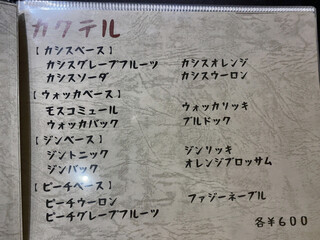 カクテル
【カシスベース】
カシスグレープフルーツ カシスオレンジ
カシスソーダ カシスウーロン
【ウォッカベース】
モスコミュール ウォッカリッキ
ウォッカバック ブルドック
【ジンベース】
ジントニック ジンリッキ
ジンバック オレンジブロッサム
【ピーチベース】
ピーチウーロン ファジーネーブル
ピーチグレープフルーツ
各¥600